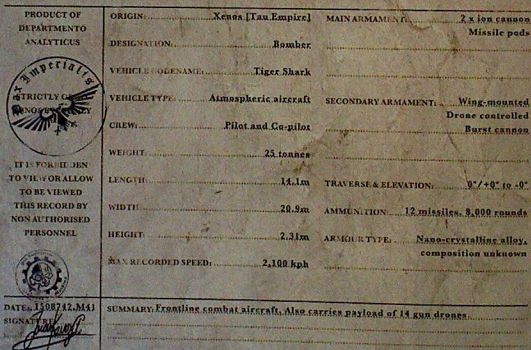 PRODUCT OF
DEPARTMENTO
ANALYTICUS
Pax Imperialis
STRICTLY
IT IS FORBIDDEN
TO VIEW OR ALLOW
TO BE VIEWED
THIS RECORD BY
NON AUTHORISED
PERSONNEL
DATE: 1508742.M41
SIGNATURE:
ORIGIN: Xenos [Tau Empire]
DESIGNATION: Bomber
VEHICLE CODENAME: Tiger Shark
VEHICLE TYPE: Atmospheric aircraft
CREW: Pilot and Co-pilot
WEIGHT: 25 tonnes
LENGTH: 14.1m
WIDTH: 20.9m
HEIGHT: 2.31m
MAX RECORDED SPEED: 2,100 kph
MAIN ARMAMENT: 2 x ion cannon
Missile pods
SECONDARY ARMAMENT: Wing-mounted
Drone controlled
Burst cannon
TRAVERSE & ELEVATION: 0°/+0° to -0°
AMMUNITION: 12 missiles, 8,000 rounds
ARMOUR TYPE: Nano-crystalline alloy,
composition unknown
SUMMARY: Frontline combat aircraft. Also carries payload of 14 gun drones